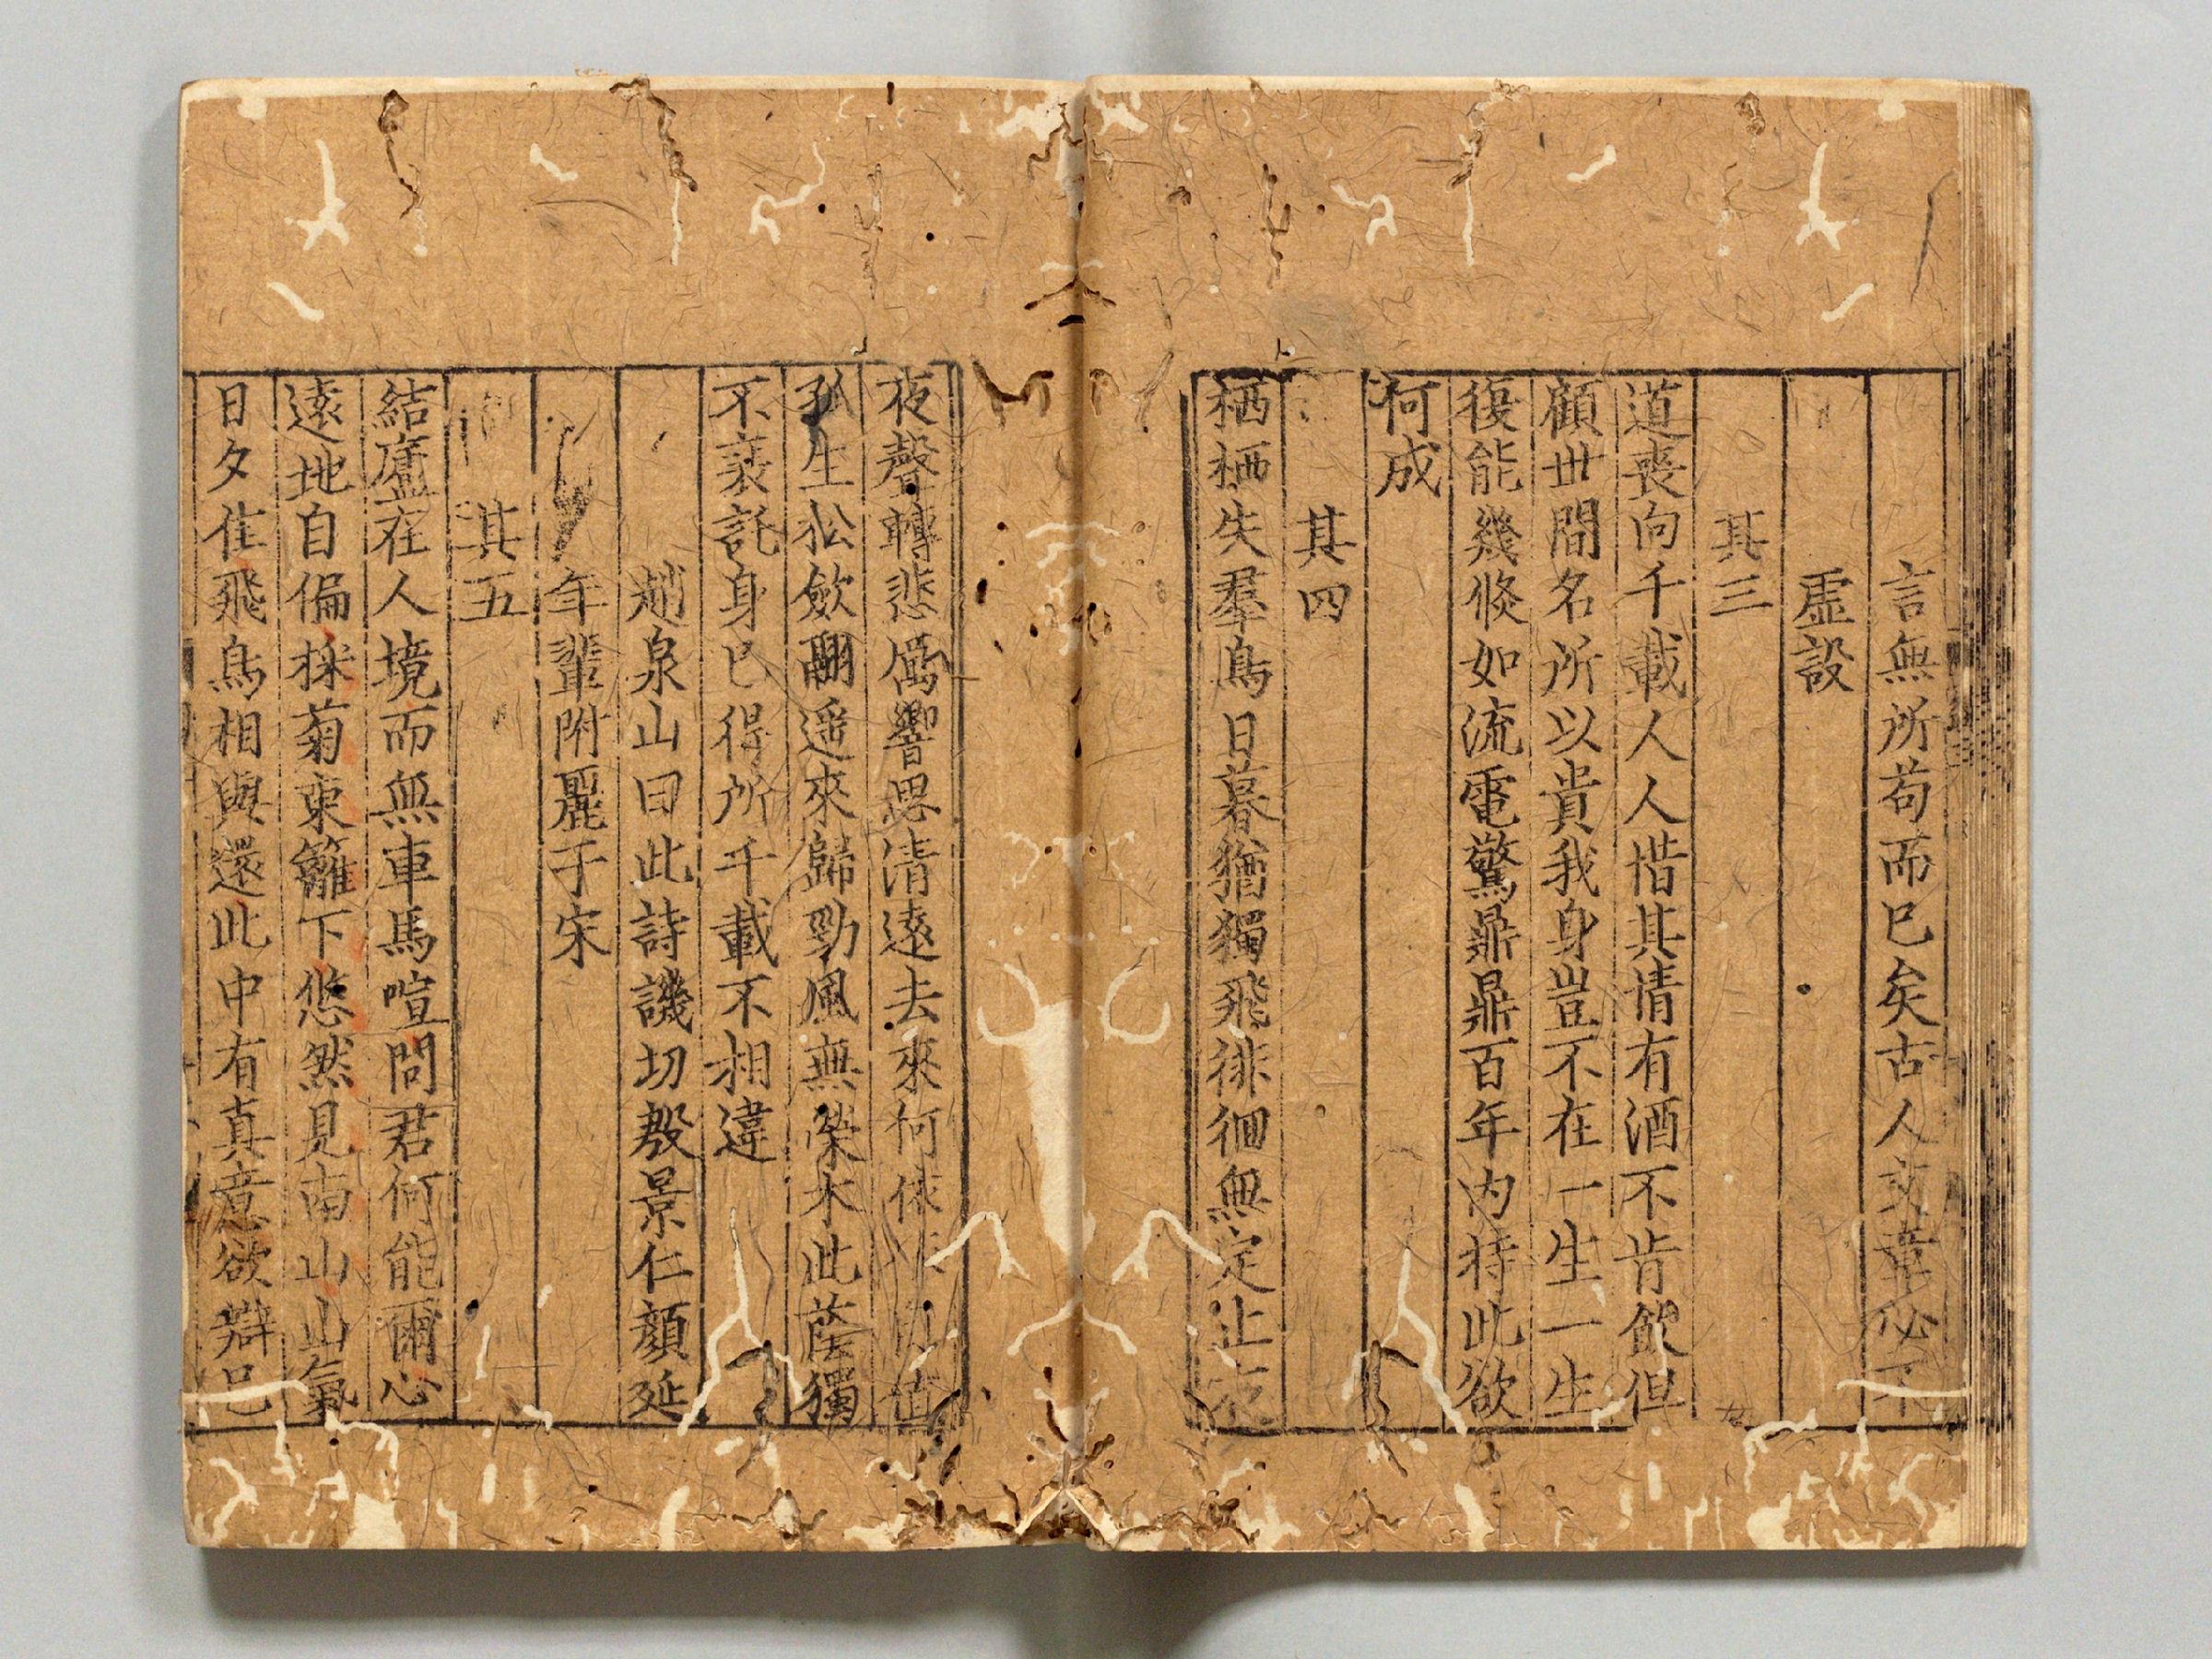 言無所苟而已矣古人文章必不
虛設
其三
道喪向千載人人惜其情有酒不肯飲但
顧世間名所以貴我身豈不在一生一生
復能幾倏如流電驚鼎鼎百年內持此欲
何成
其四
栖栖失羣鳥日暮猶獨飛徘徊無定止夜
夜聲轉悲厲響思清遠去來何依依因值
孤生松斂翮遥來歸勁風無榮木此蔭獨
不衰託身已得所千載不相違
趙泉山曰此詩譏切殷景仁顏延
年輩附麗于宋
其五
結廬在人境而無車馬喧問君何能爾心
遠地自偏採菊東籬下悠然見南山山氣
日夕佳飛鳥相與還此中有真意欲辯已